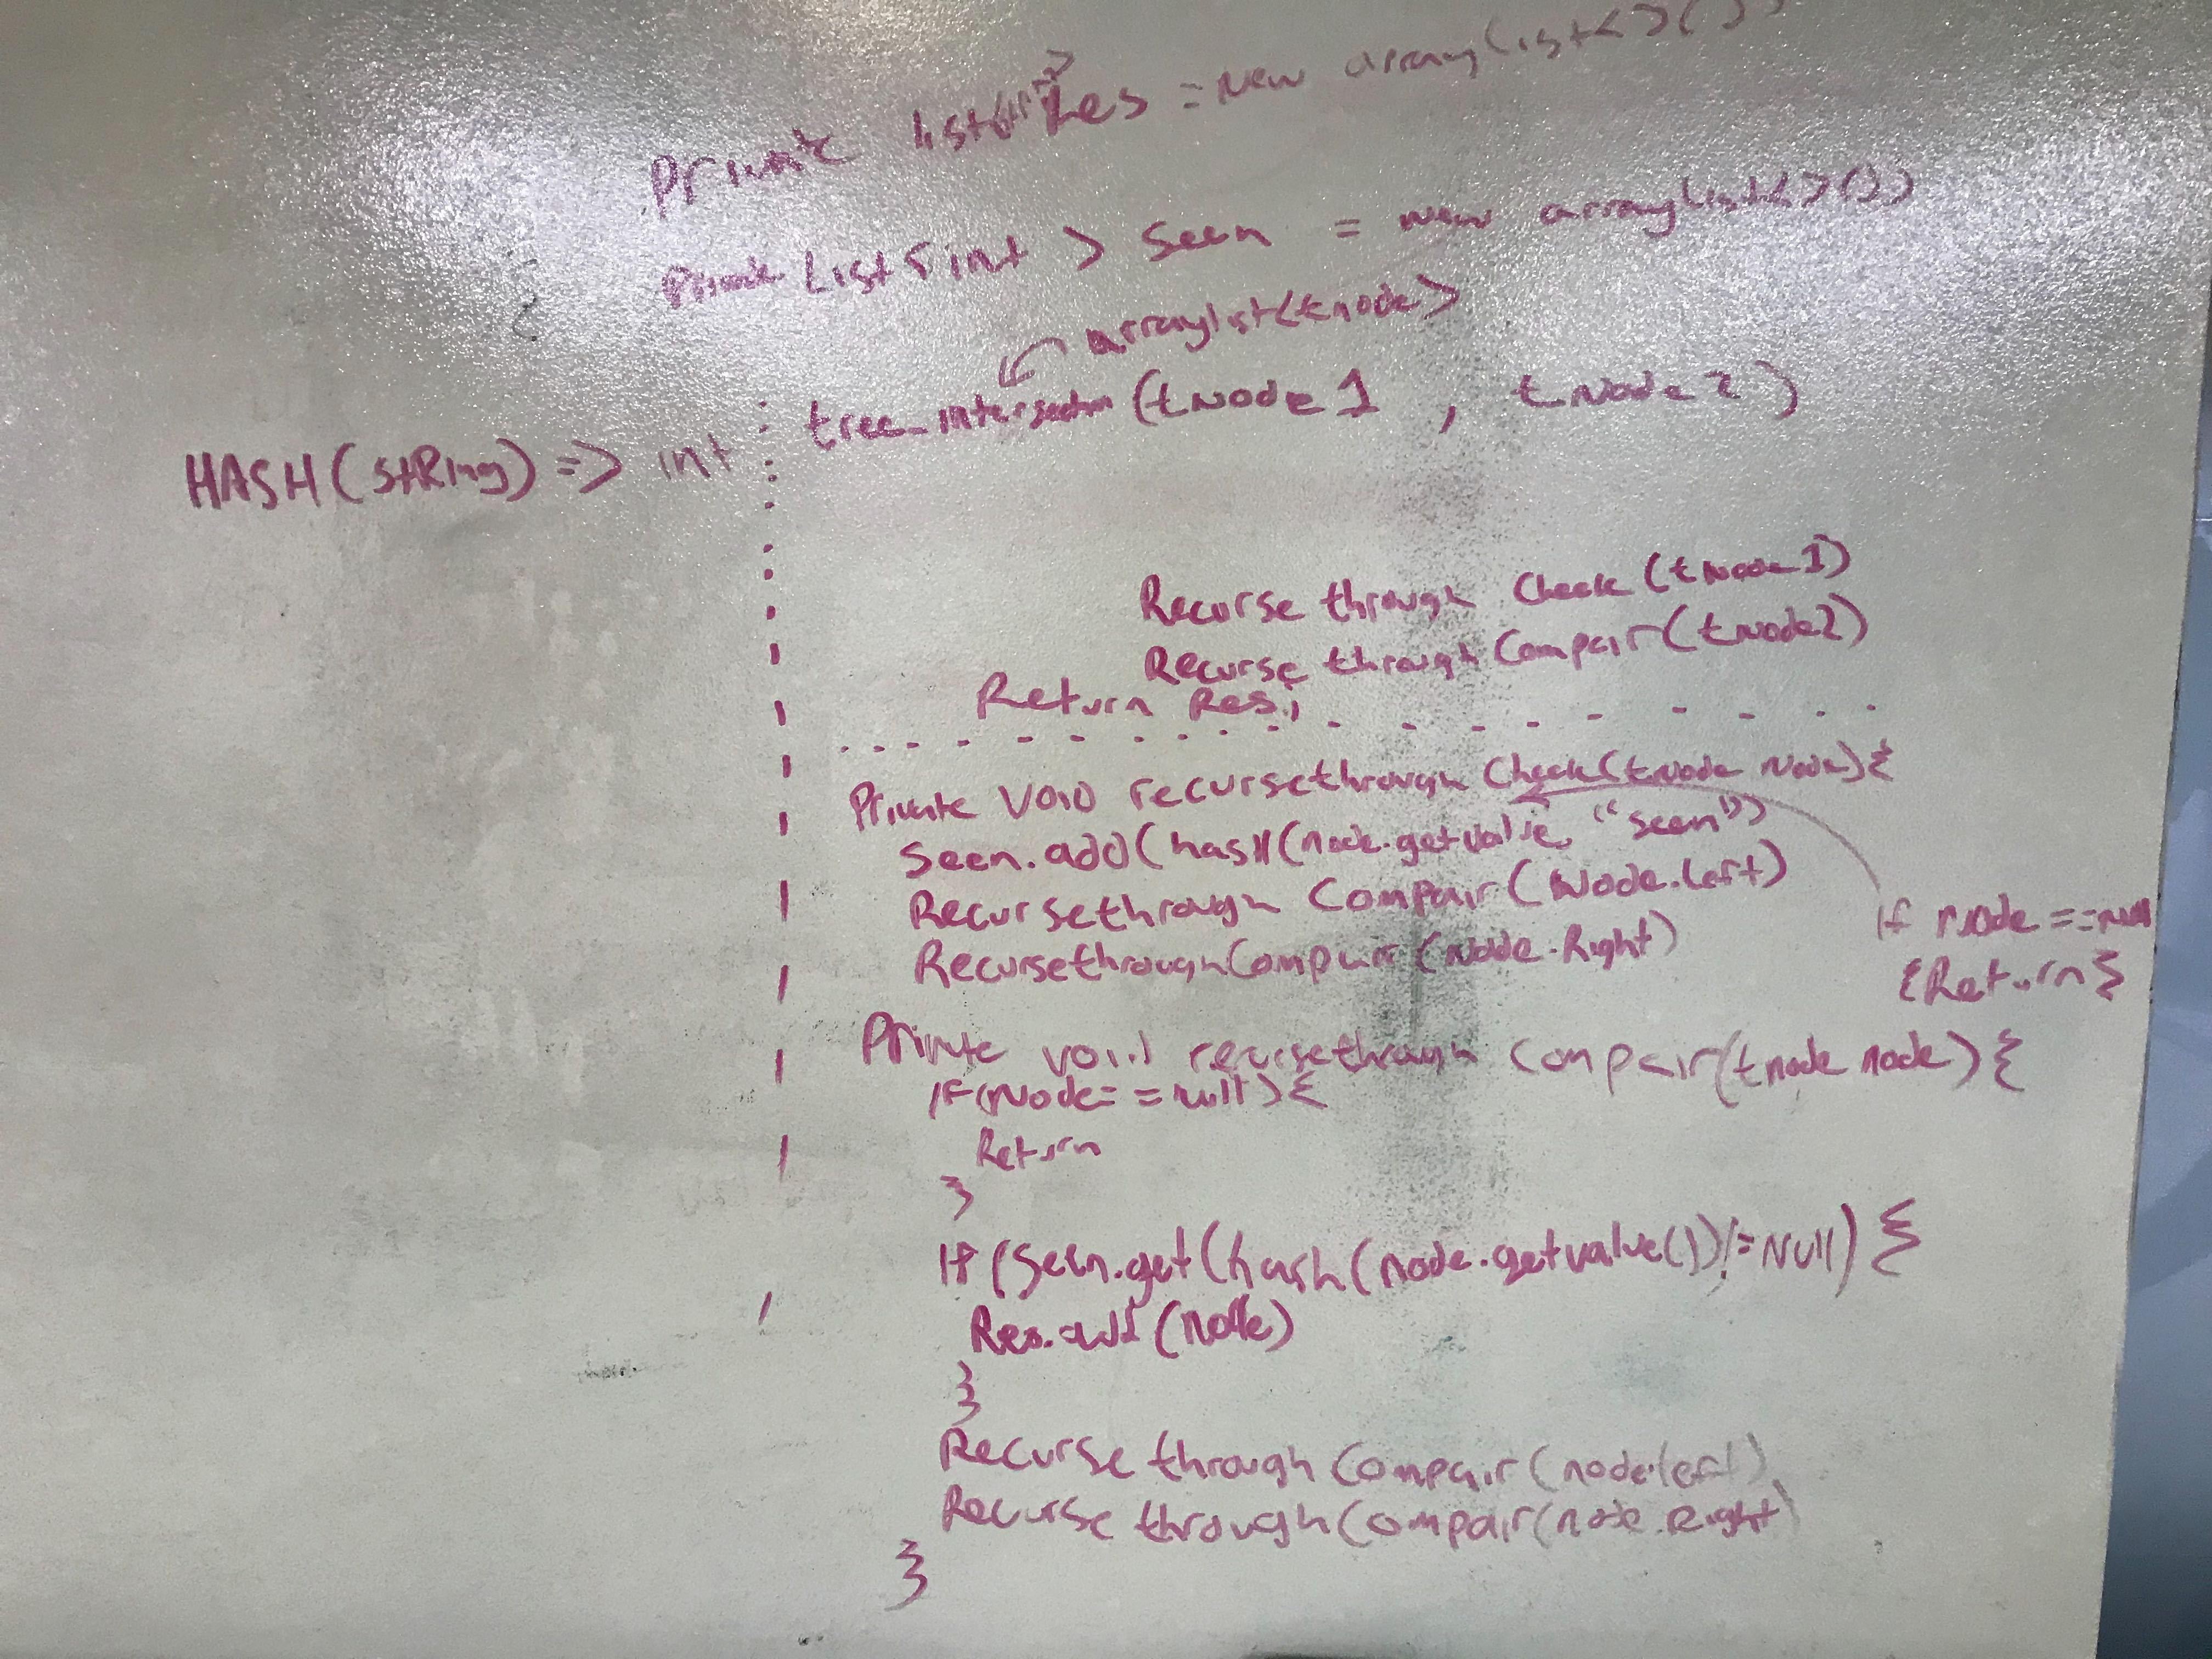 Private list Res = New arraylist<>()
Private List<int> Seen = new arraylist<>())
arraylist<tnode>
HASH(StRing) => int
tree_intersection (tNode 1 , tNode 2)
Recurse through Check (tNode 1)
Recurse through Compair (tNode2)
Return Res;
Private Void recursethrough Check(tNode Node){
Seen.add(hash(node.getvalue, "seen"))
Recursethrough Compair (Node.left)
RecursethroughCompair (Node.Right)
If Node == Null
{Return}
Private void recursethrough Compair(tnode node) {
IF(Node==null){
Return
}
If (Seen.get(hash(node.getvalue())!=Null) {
Res.add (Node)
}
Recurse through Compair (node.left)
Recurse through Compair(node.Right)
}